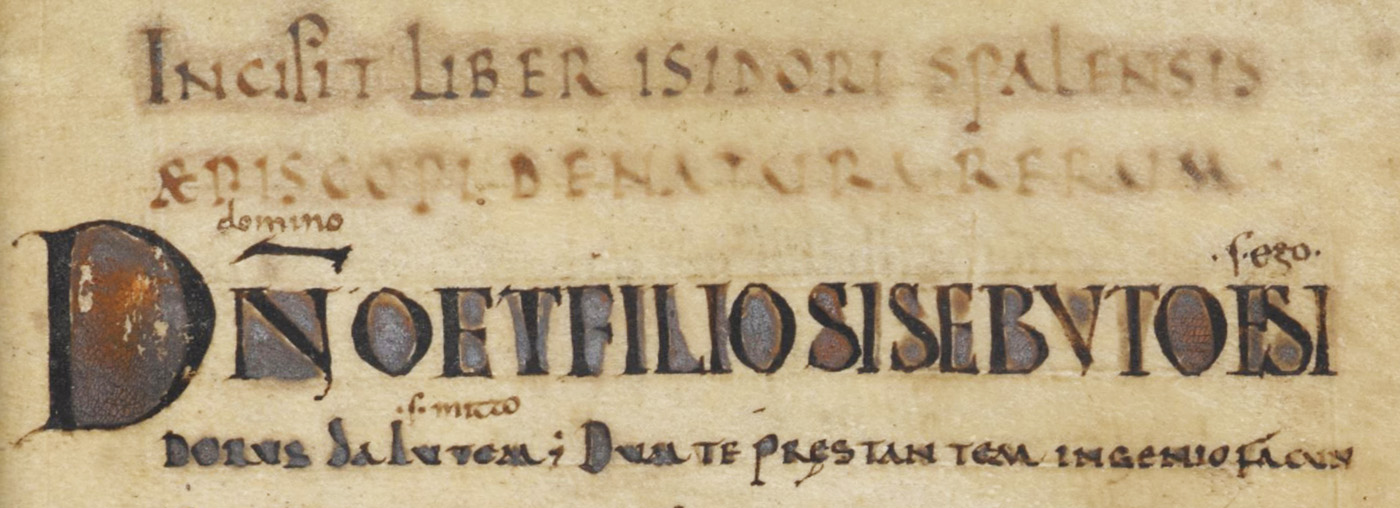 INCIPIT LIBER ISIDORI SPALENSIS
ÆPISCOPI DE NATURA RERUM
domino
DÑO ET FILIO SISEBVTO ESI
·s·ego·
·s· mitto
DORUS SALUTEM; DUM TE PRĘSTANTEM INGENIO FACUN